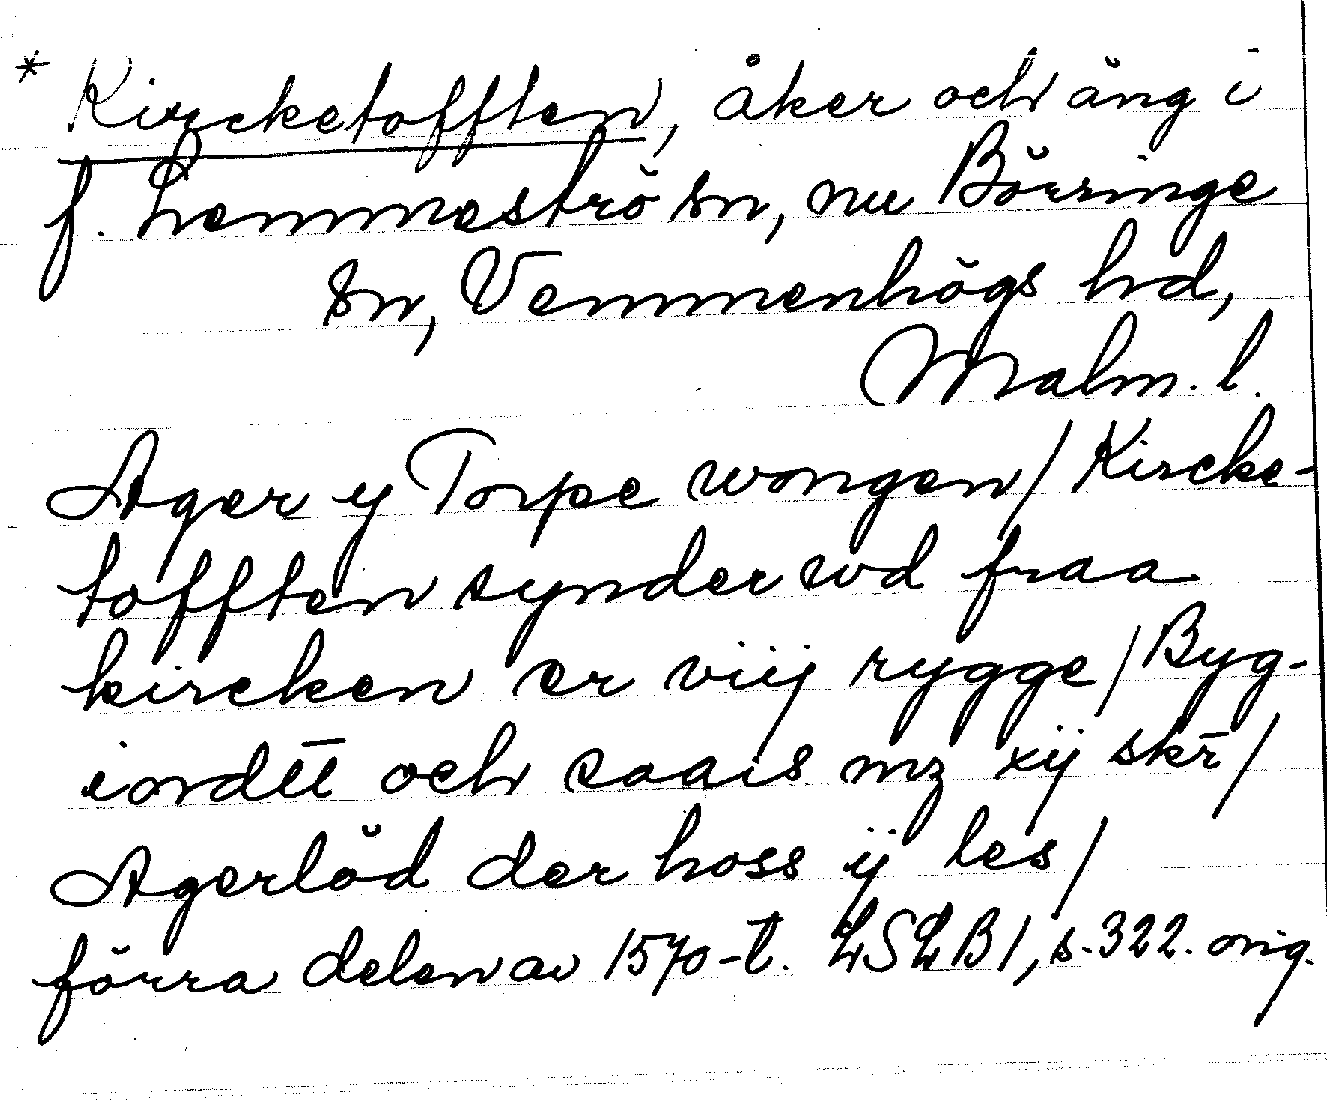 * Kircketofften, åker och äng i
f. Lemmeströ sn, nu Börringe
sn, Vemmenhögs hd,
Malm. l.
Ager y Torpe wongen / Kircke-
tofften synder wd fraa
kircken er viij rygge / Byg-
iordtt och saais mz xij skr̄ /
Agerlöd der hoss ij les /
förra delen av 1570-t. LSLB 1, s. 322. orig.